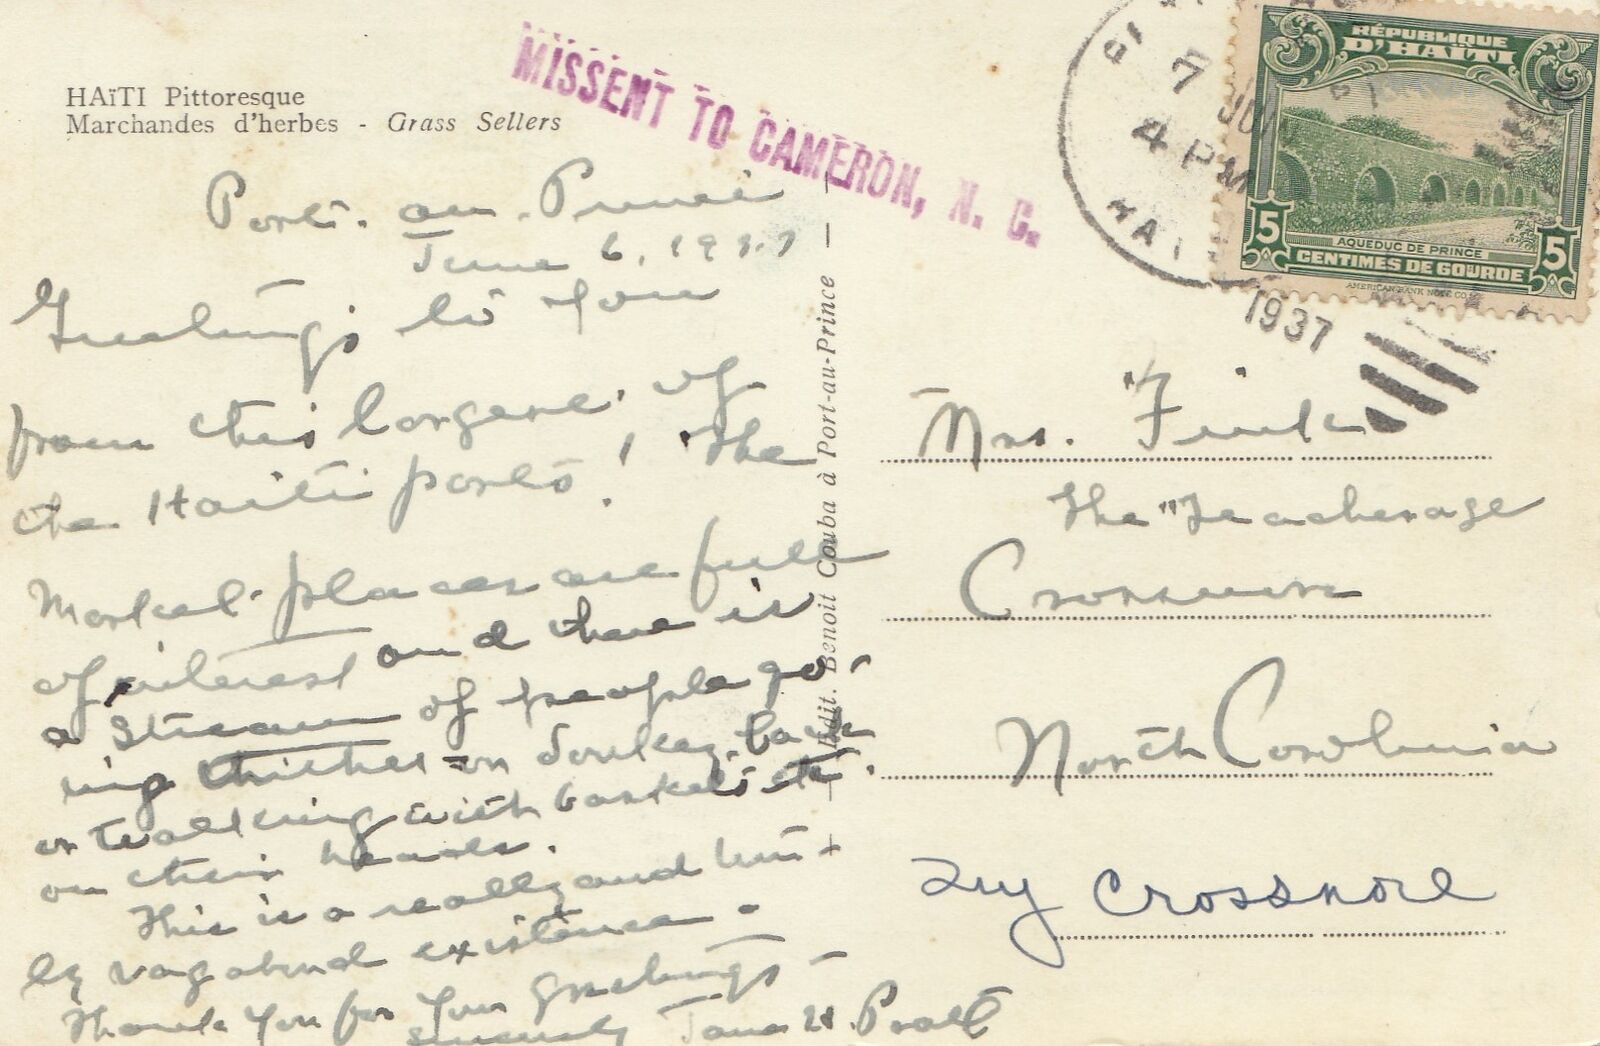 HAïTI Pittoresque
Marchandes d'herbes - Grass Sellers
MISSENT TO CAMERON, N. C.
7 JUN
4 PM
HAITI
1937
RÉPUBLIQUE
D'HAÏTI
AQUEDUC DE PRINCE
5 CENTIMES DE GOURDE 5
AMERICAN BANK NOTE CO.
Port. au. Prince
June 6, 1937
Greetings to You
from this largest of
the Haiti ports! The
Market-places are full
of interest and there is
a Stream of people go-
ing thither on donkey-back
or walking with baskets etc.
on their heads.
This is a really and
ly vagabond existence -
Thank You for Your Greetings -
Sincerely Jane H. Pratt
Edit. Benoit Couba à Port-au-Prince
Mrs. "Fink"
The "Teacherage
Crossnore
North Carolina
Try Crossnore